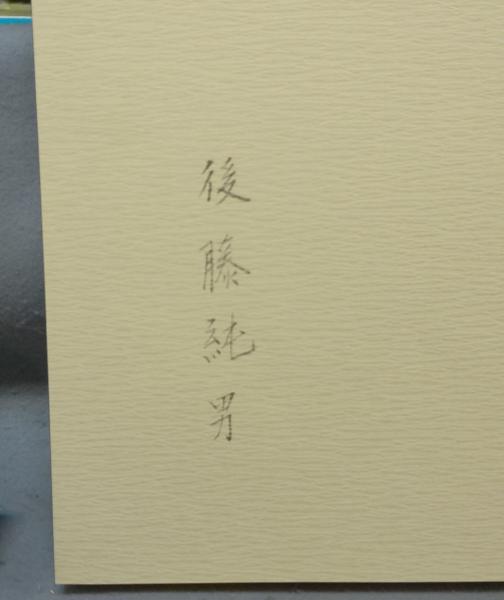 後藤純男